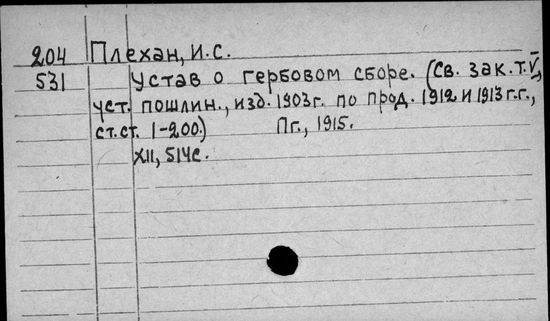 204 Плехан, И.С.
531 Устав о гербовом сборе. (Св. зак. т. V,
уст. пошлин., изд. 1903г. по прод. 1912 и 1913 г.г.,
ст.ст. 1-200.) Пг., 1915.
XII, 514с.